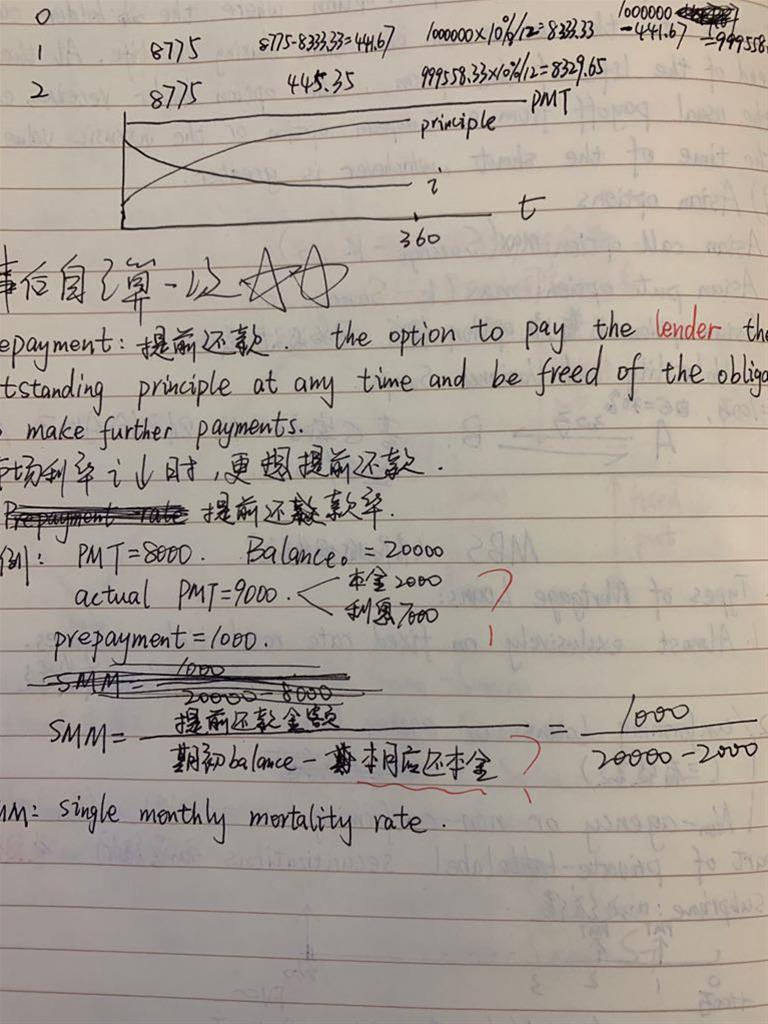 0
1 8775 8775-8333.33=441.67 1000000×10%/12=8333.33 1000000-441.67=999558.
2 8775 445.35 999558.33×10%/12=8329.65
PMT
principle
i
t
360
事后自己算一边
epayment: 提前还款. the option to pay the lender the
tstanding principle at any time and be freed of the obliga
make further payments.
市场利率i↓时, 更想提前还款.
提前还款率.
例: PMT=8000. Balance₀=20000
actual PMT=9000. 本金2000 利息7000 ?
prepayment=1000.
SMM= 1000/20000-8000
SMM= 提前还款金额/期初balance-本月应还本金 = 1000/20000-2000
?
MM: single monthly mortality rate.